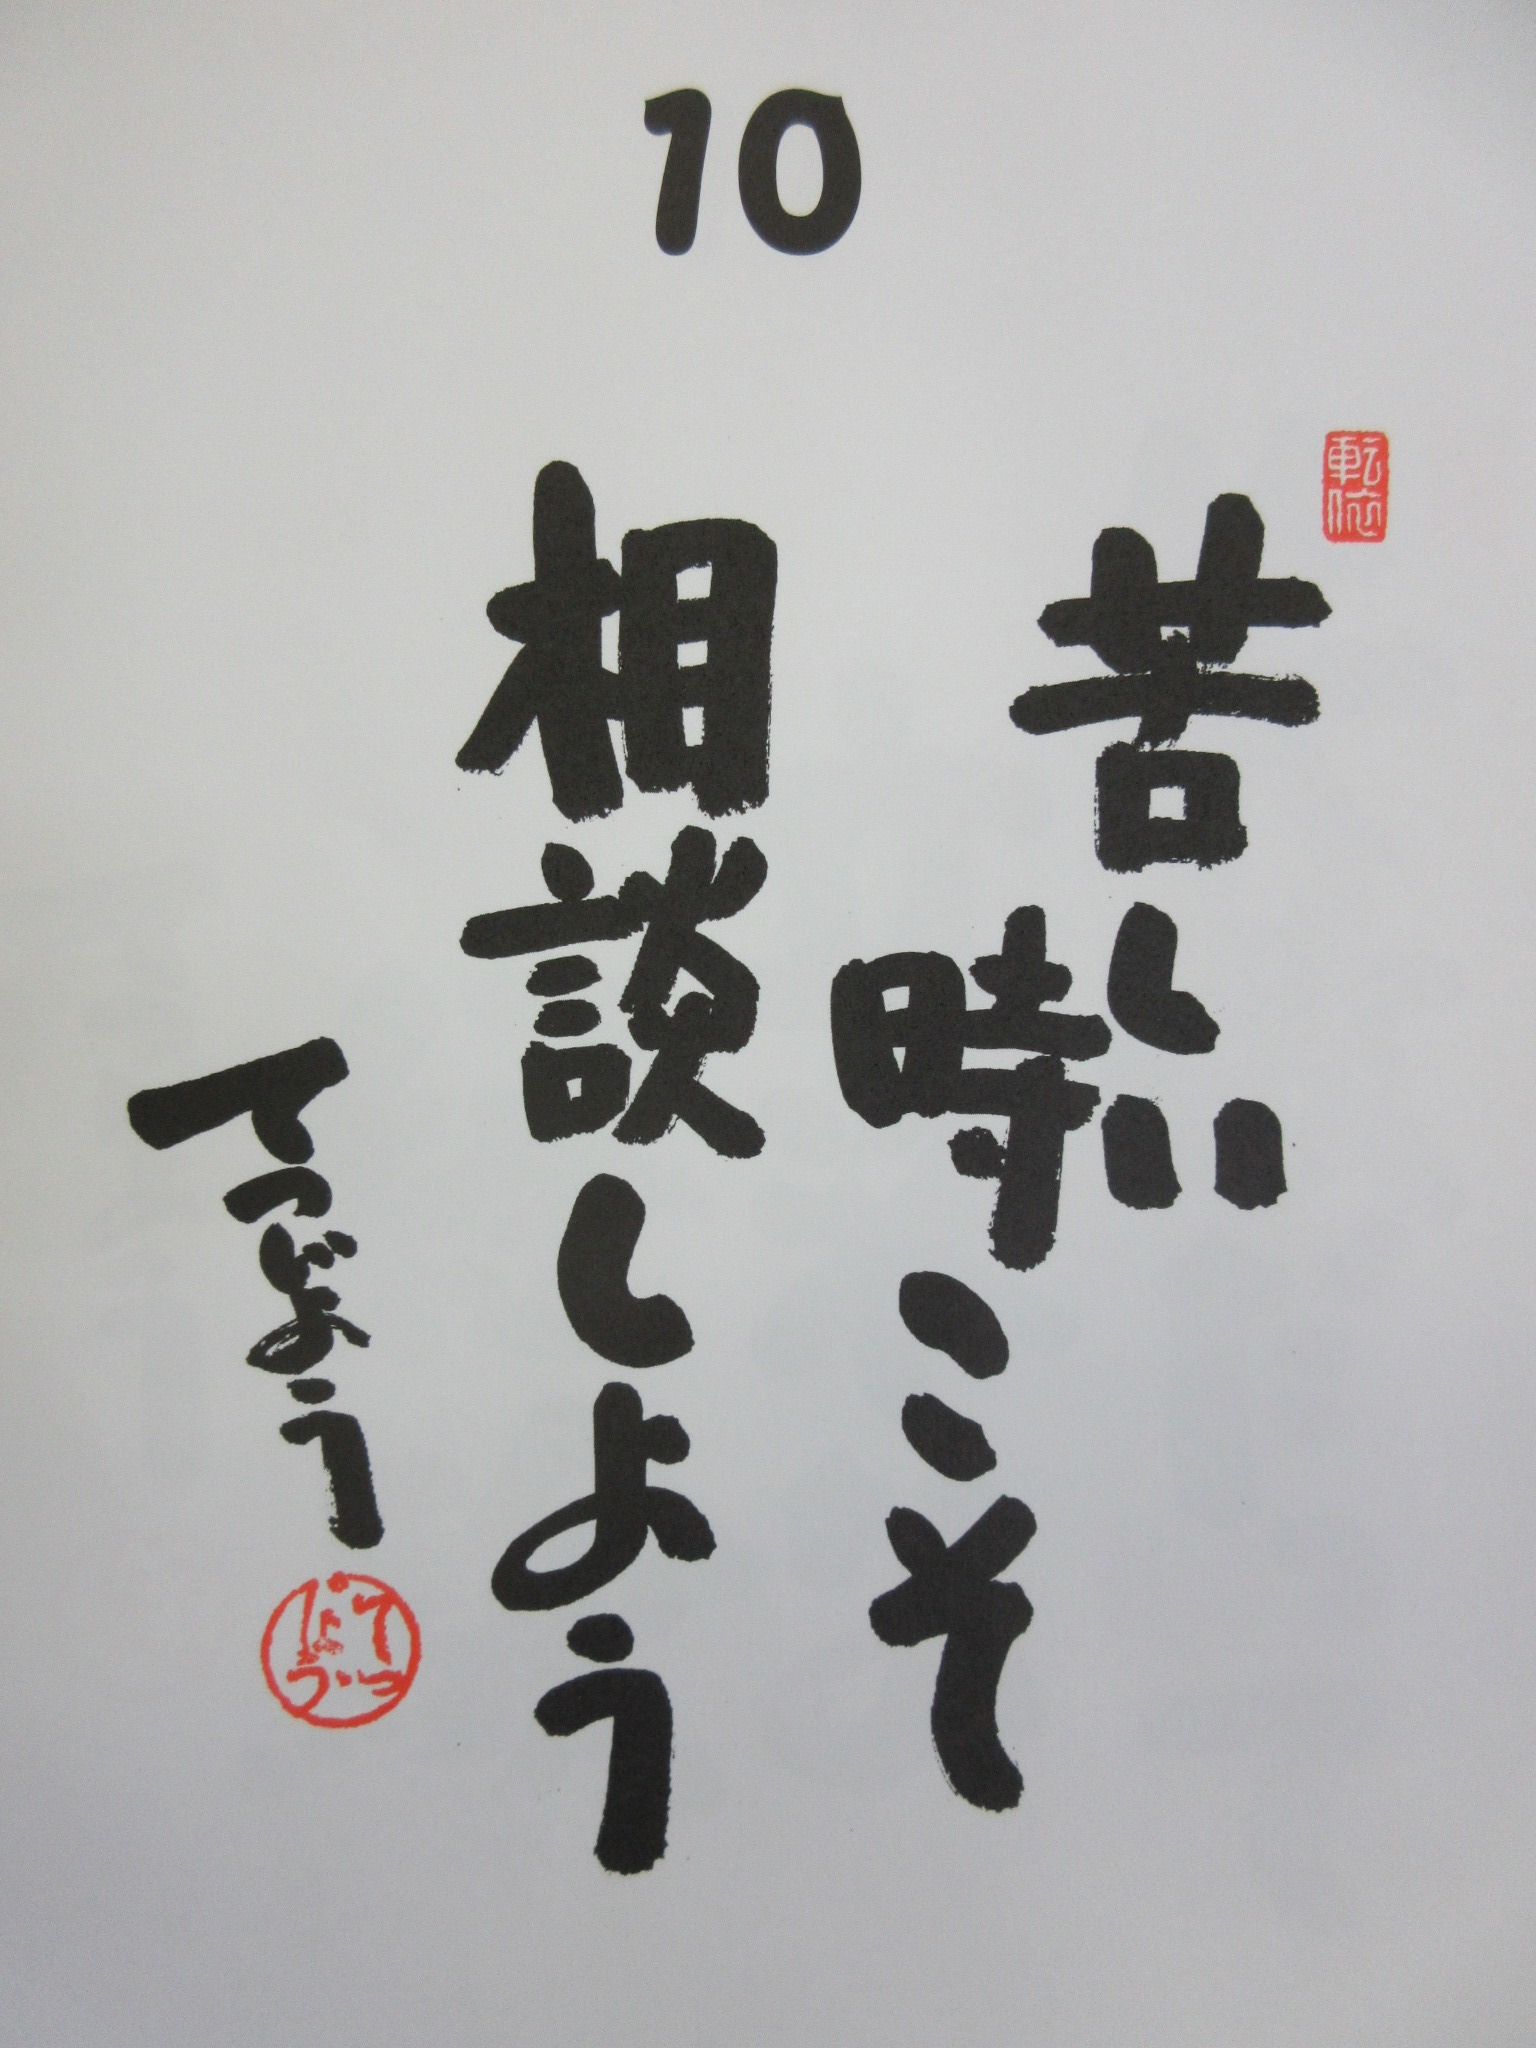 10
転依
苦しい
時こそ
相談しよう
てつじょう
てつじょう